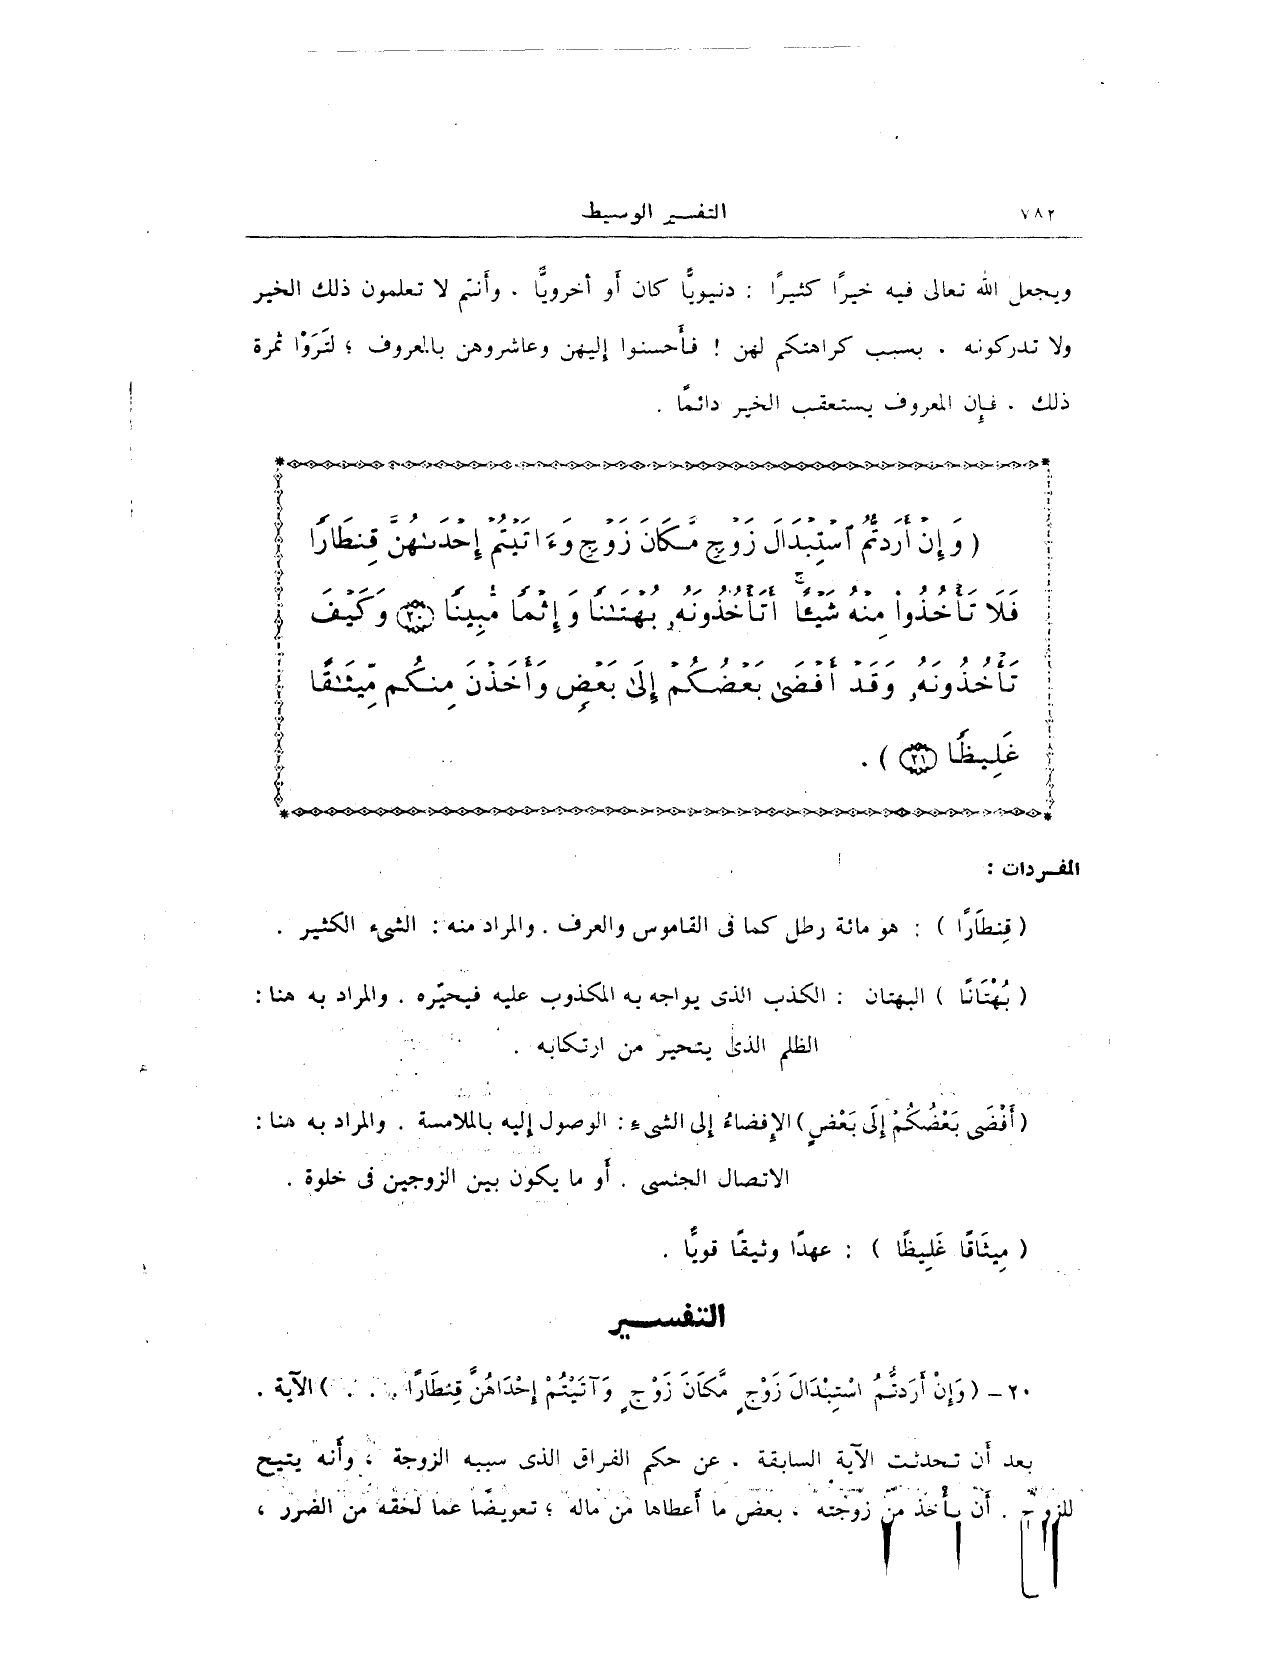 ٧٨٢
التفسير الوسيط
ويجعل الله تعالى فيه خيرًا كثيرًا : دنيويًّا كان أو أخرويًّا . وأنتم لا تعلمون ذلك الخير
ولا تدركونه . بسبب كراهتكم لهن ! فأحسنوا إليهن وعاشروهن بالمعروف ؛ لتَرَوْا ثمرة
ذلك . فإن المعروف يستعقب الخير دائمًا .
( وَإِنْ أَرَدتُّمُ ٱسْتِبْدَالَ زَوْجٍ مَّكَانَ زَوْجٍ وَءَاتَيْتُمْ إِحْدَىٰهُنَّ قِنطَارًا
فَلَا تَأْخُذُوا۟ مِنْهُ شَيْـًٔا ۚ أَتَأْخُذُونَهُۥ بُهْتَـٰنًا وَإِثْمًا مُّبِينًا ٢٠ وَكَيْفَ
تَأْخُذُونَهُۥ وَقَدْ أَفْضَىٰ بَعْضُكُمْ إِلَىٰ بَعْضٍ وَأَخَذْنَ مِنكُم مِّيثَـٰقًا
غَلِيظًا ٢١ ) .
المفردات :
( قِنطَارًا ) : هو مائة رطل كما فى القاموس والعرف . والمراد منه : الشىء الكثير .
( بُهْتَانًا ) البهتان : الكذب الذى يواجه به المكذوب عليه فيحيّره . والمراد به هنا :
الظلم الذى يتحير من ارتكابه .
( أَفْضَى بَعْضُكُمْ إِلَى بَعْضٍ ) الإفضاءُ إلى الشىء : الوصول إليه بالملامسة . والمراد به هنا :
الاتصال الجنسى . أو ما يكون بين الزوجين فى خلوة .
( مِيثَاقًا غَلِيظًا ) : عهدًا وثيقًا قويًّا .
التفسير
٢٠ – ( وَإِنْ أَرَدتُّمُ اسْتِبْدَالَ زَوْجٍ مَّكَانَ زَوْجٍ وَآتَيْتُمْ إِحْدَاهُنَّ قِنطَارًا . . . ) الآية .
بعد أن تحدثت الآية السابقة . عن حكم الفراق الذى سببه الزوجة ، وأنه يتيح
للزوج . أن يأخذ من زوجته . بعض ما أعطاها من ماله ؛ تعويضًا عما لحقه من الضرر ،